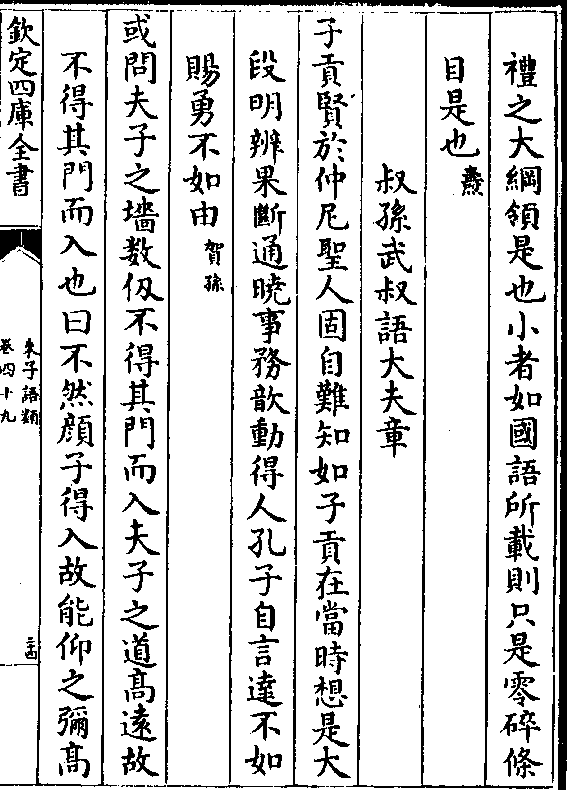 禮之大綱領是也小者如國語所載則只是零碎條
目是也 燾
叔孫武叔語大夫章
子貢賢於仲尼聖人固自難知如子貢在當時想是大
段明辨果斷通曉事務歆動得人孔子自言達不如
賜勇不如由 賀孫
或問夫子之墻數仭不得其門而入夫子之道高遠故
不得其門而入也曰不然顔子得入故能仰之彌高
欽定四庫全書
朱子語類
卷四十九